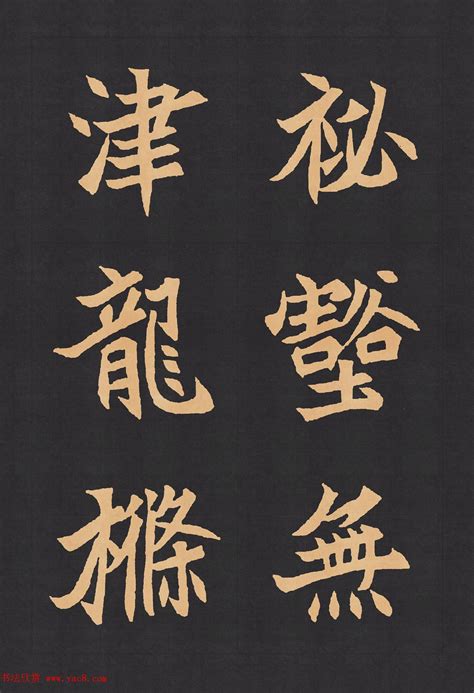 祕壑無
津龍
书法欣赏 www.yac8.com